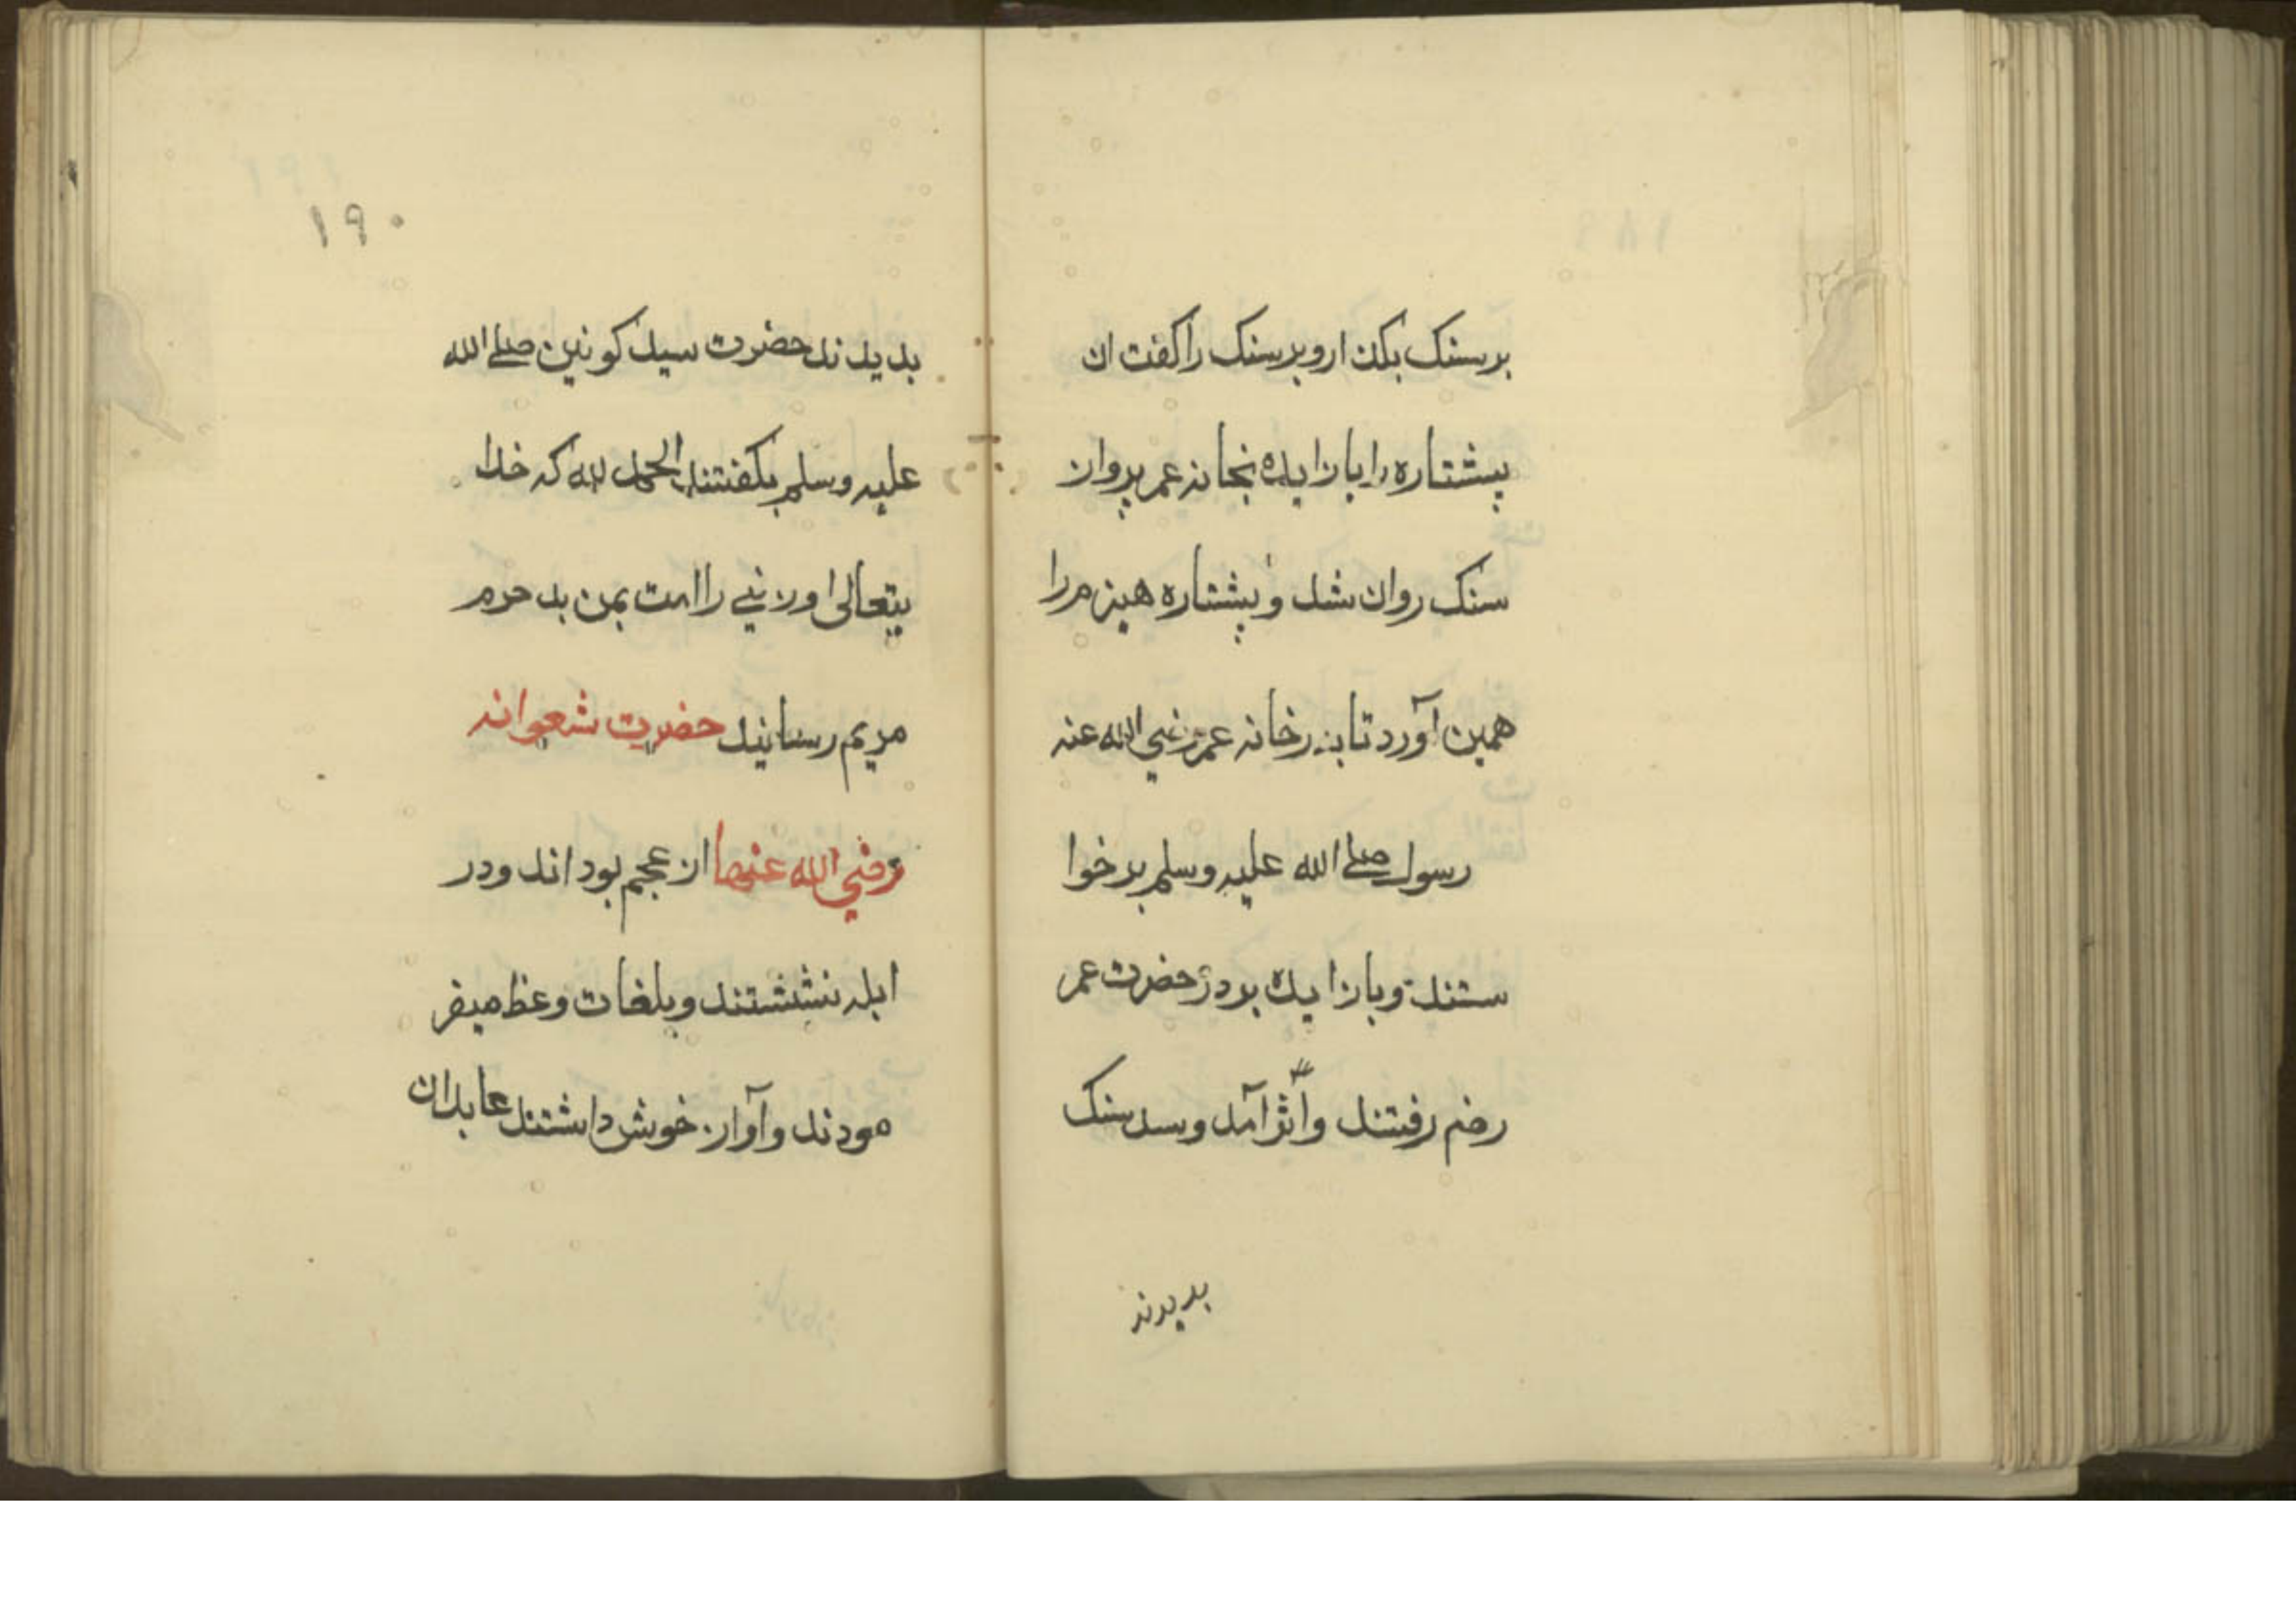 بر سنک بکذار و بر سنک را کفت ان
پیشتاره را بازایده نجانه عمر بروان
سنک روان شد و پشتاره هیزم را
همین آورد تا بدرخانه عمر رضي الله عنه
رسول صلے الله علیه وسلم بر خوا
ستند و بازایده بر در حضرت عمر
رضم رفتند و اثر آمد و سد سنک
بدیدند
۱۹۰
بدیدند حضرت سید کونین صلے الله
علیه وسلم بکفتند الحمد لله که خدا
یتعالی اورنیي را امت بمن بد حرم
مریم رسانید حضرت شعوانه
رضي الله عنها از عجم بود اند و در
ابله نششتند و بلغات وعظ میفر
مودند و آواز خوش داشتند عابدان